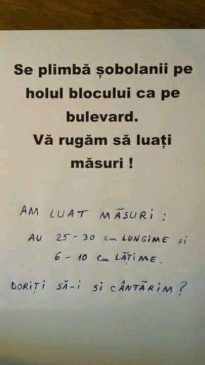 Se plimbă șobolanii pe
holul blocului ca pe
bulevard.
Vă rugăm să luați
măsuri !
AM LUAT MĂSURI :
AU 25-30 cm LUNGIME și
6-10 cm LĂȚIME.
DORIȚI SĂ-I ȘI CÂNTĂRIM ?